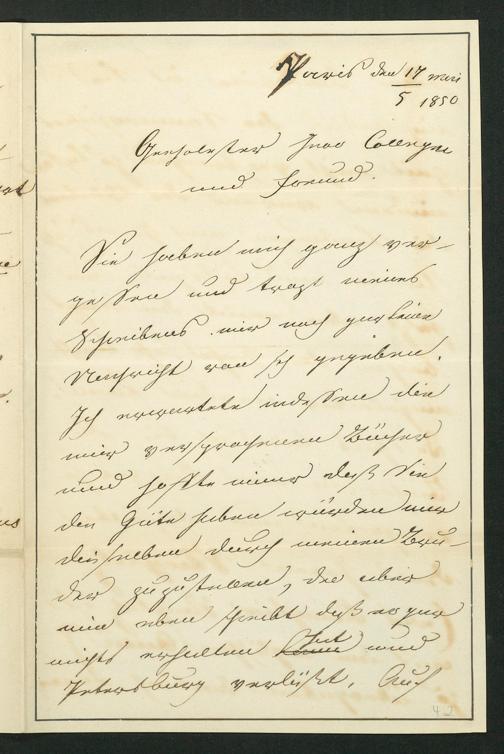 Paris den 17 Mai
5 1850
Geehrtester Herr College
und Freund.
Sie haben mich ganz ver-
gessen und trotz meines
Schreibens mir noch gar keine
Nachricht von sich gegeben.
Ich erwartete indessen die
mir versprochenen Bücher
und hoffte immer daß Sie
die Güte haben würden mir
dieselben durch meinen Bru-
der zuzustellen, der aber
mir eben schreibt daß er gar
nichts erhalten hat und
Petersburg verläßt. Auch
42